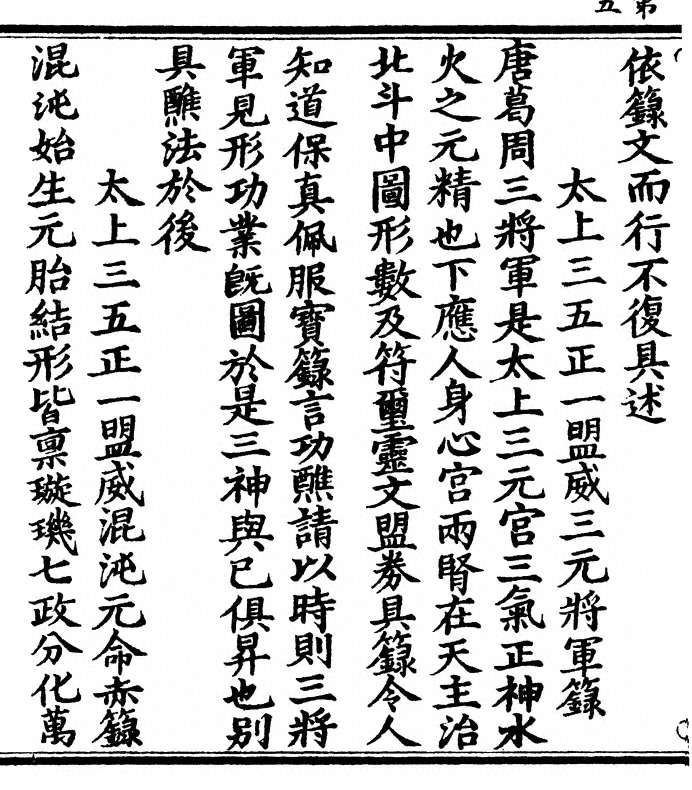 第五
依籙文而行不復具述
太上三五正一盟威三元將軍籙
唐葛周三將軍是太上三元宮三氣正神水
火之元精也下應人身心宮兩腎在天主治
北斗中圖形數及符璽靈文盟券具籙令人
知道保真佩服寶籙言功醮請以時則三將
軍見形功業旣圖於是三神與已俱昇也別
具醮法於後
太上三五正一盟威混沌元命赤籙
混沌始生元胎結形皆禀璇璣七政分化萬